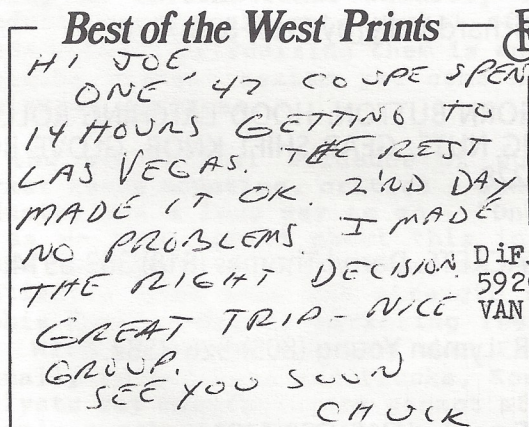 Best of the West Prints
HI JOE,
ONE '47 COUPE SPEN
14 HOURS GETTING TO
LAS VEGAS. THE REST
MADE IT OK. 2'ND DAY
NO PROBLEMS. I MADE
THE RIGHT DECISION.
GREAT TRIP - NICE
GROUP.
SEE YOU SOON
CHUCK
DiF.
592
VAN